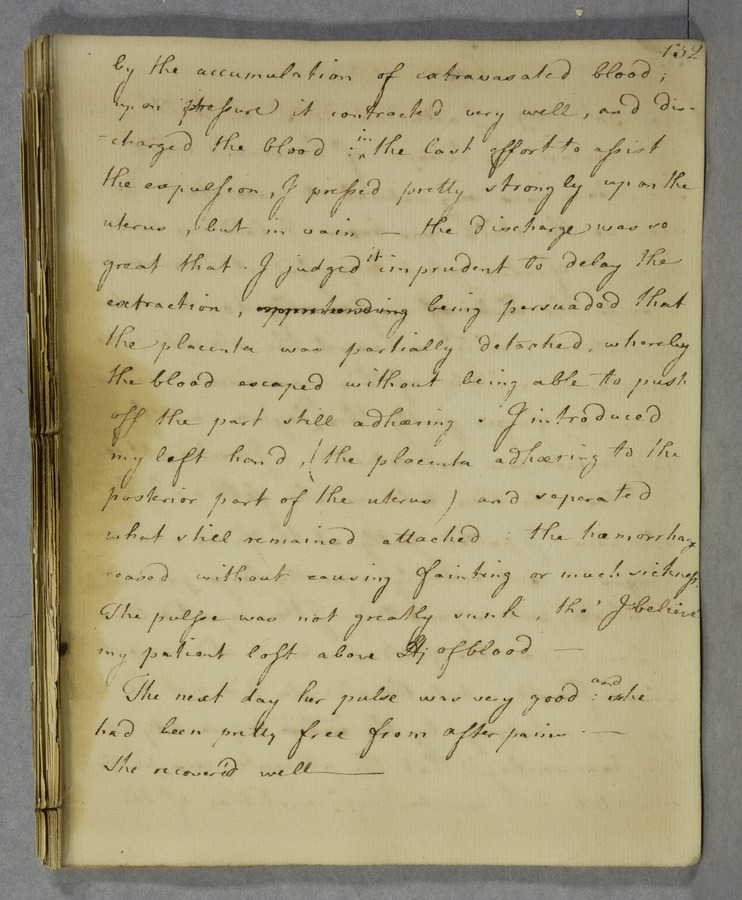 132
by the accumulation of extravasated blood;
upon pressure it contracted very well, and dis-
=charged the blood : in the last effort to assist
the expulsion, I pressed pretty strongly upon the
uterus, but in vain — the discharge was so
great that I judged it imprudent to delay the
extraction, apprehending being persuaded that
the placenta was partially detached, whereby
the blood escaped without being able to push
off the part still adhæring. I introduced
my left hand, (the placenta adhæring to the
posterior part of the uterus) and seperated
what still remained attached : the hæmorrhage
ceased without causing fainting or much sickness.
The pulse was not greatly sunk, tho' I believe
my patient lost above of blood —
The next day her pulse was very good : and she
had been pretty free from after pains —
She recovered well —